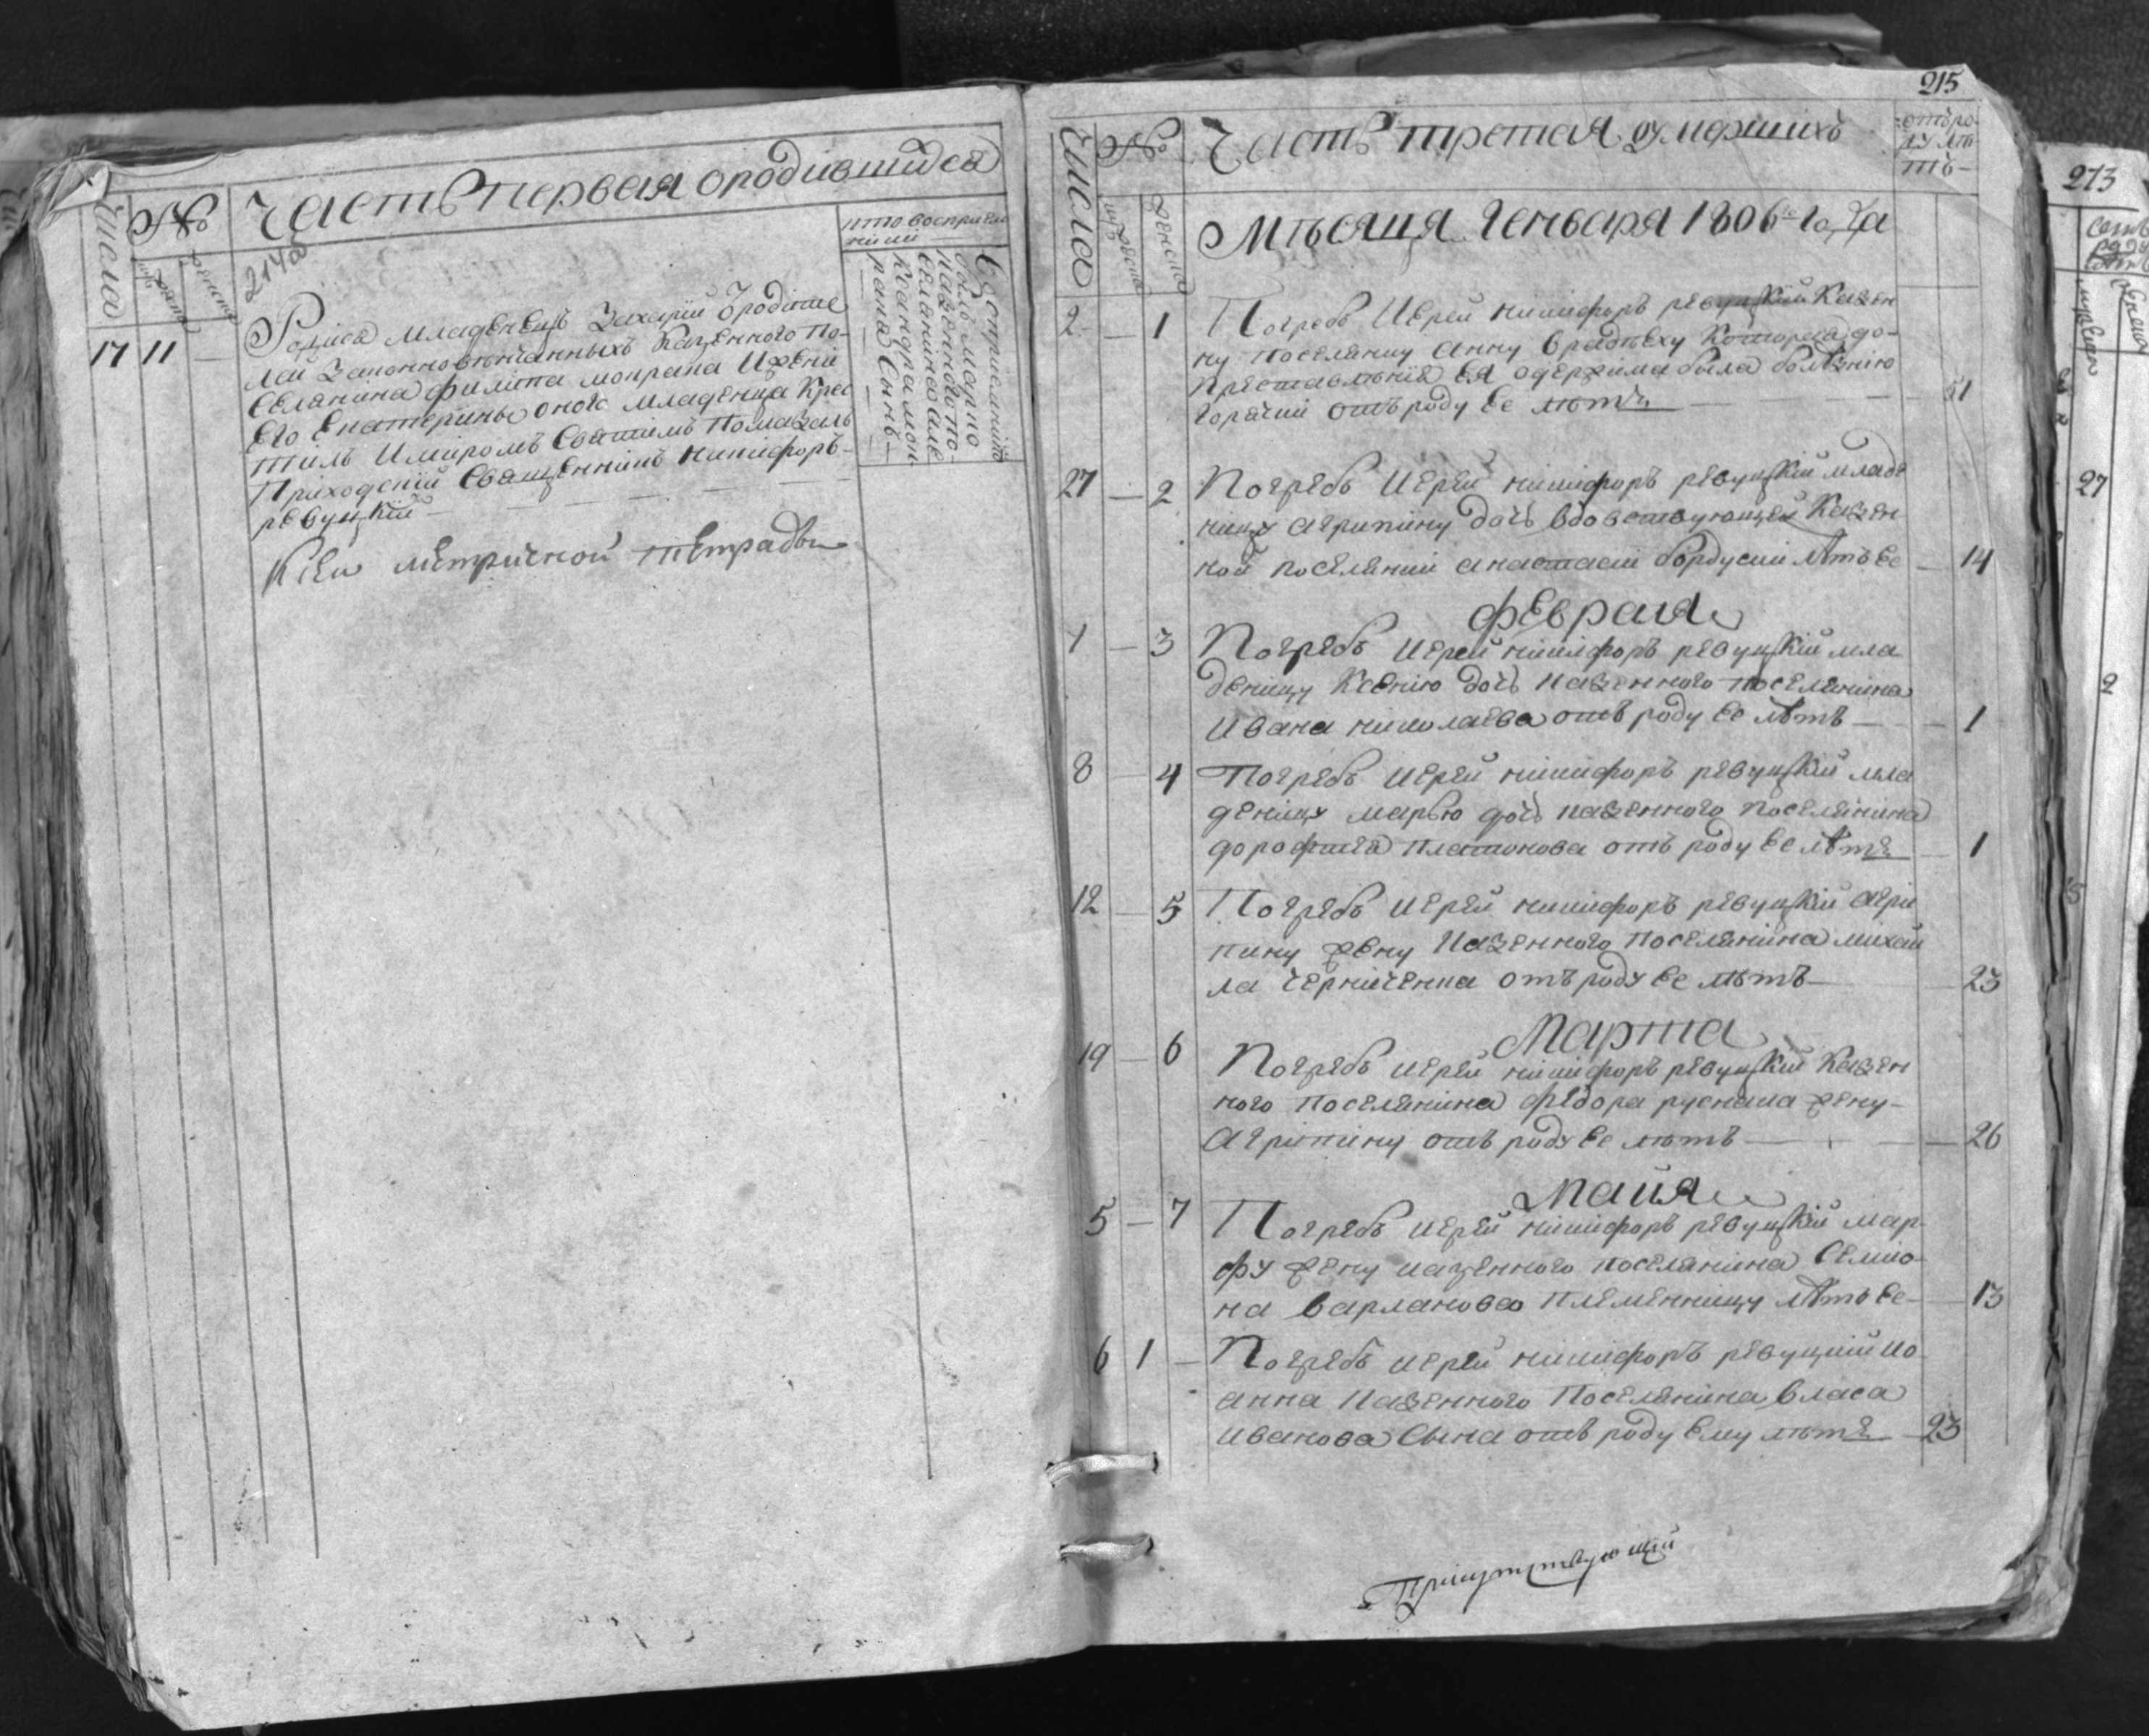 Числа
№
Часть первая о родившихся
муж: песка
женска
кто восприем
никии
214об
17 11 — Родися младенецъ Захарїй ѿ родите
лей законновѣнчанныхъ казенного по-
селянина филипа мокрана и жени
его Екатерины оного младенца крес
тилъ и миромъ святимъ помазалъ
приходскїй священникъ никифоръ
ревуцкїй
Воспріемникъ
былъ Марко
казенного по-
селянина Але
ксандра мок
рана Сынъ
Ксей метрической тетради
215
Числа
№
Часть третая ѹмершихъ
отъ ро-
ду лѣ
тъ-
женска
Мѣсяця Генваря 1806го года
2 — 1 Погребъ Иерей никифоръ ревуцкїй казен
ну поселянцу Анну Которая до-
преставленїя ея одержима была болезнїю
горячий отъ роду Ее лѣтъ 51
27 — 2 Погребъ Иерей никифоръ ревуцкїй младе
ницу агрипину дочь вдовствующей казен
ной поселянки анастасїи бордуский лѣтъ ее — 14
февраля
1 — 3 Погребъ Иерей никифоръ ревуцкїй мла
деницу Ксенїю дочь казенного поселянина
ивана николаева отъ роду Ее лѣтъ — 1
8 — 4 Погребъ Иерей никифоръ ревуцкїй мла
деницу марью дочь казенного поселянина
дорофтея платонова отъ роду Ее лѣтъ — 1
12 — 5 Погребъ Иерей никифоръ ревуцкїй агри
пину жену казенного поселянина михай
ла черниченка отъ роду Ее лѣтъ — 23
Марта
19 — 6 Погребъ Иерей никифоръ ревуцкїй казен
ного поселянина федора руснака жену-
Агрипину отъ роду Ее лѣтъ — 26
Майя
5 — 7 Погребъ Иерей никифоръ ревуцкїй мар
фу жену казенного поселянина Семио
на варланова племенницу лѣтъ ее — 13
6 1 — Погребъ Иерей никифоръ ревуцкїй ио
анна казенного поселянина власа
иванова сына отъ роду Ему лѣтъ 23
Присутствующїй
273
27
2